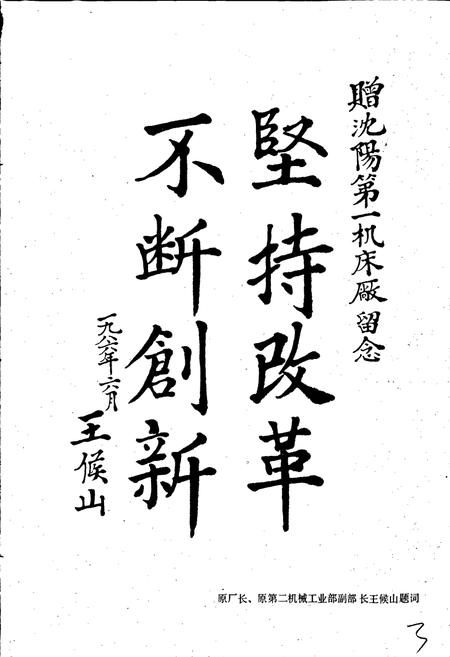 贈沈陽第一机床廠留念
堅持改革
不断創新
一九八六年六月
王候山
原厂长、原第二机械工业部副部长王候山题词
3